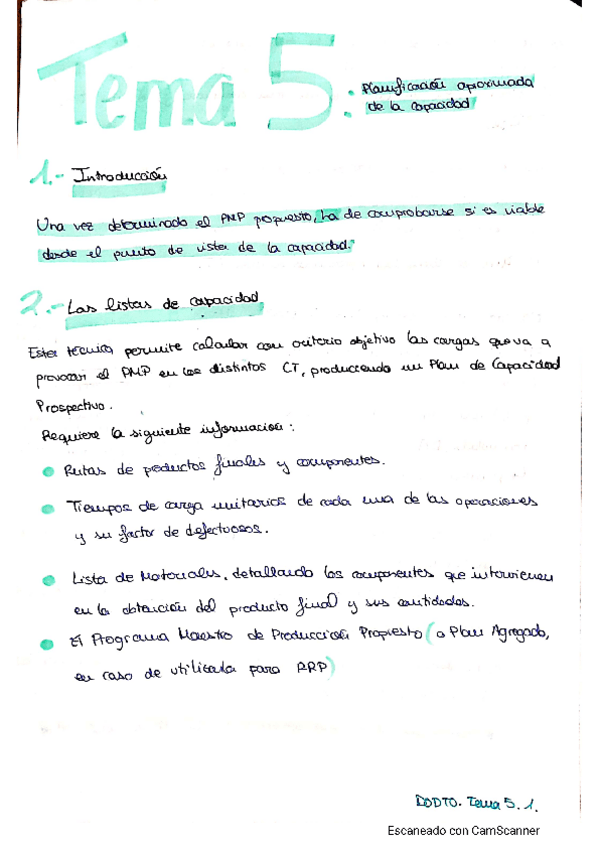 Tema 5: Planificación aproximada
de la capacidad
1.- Introducción
Una vez determinado el PMP propuesto, ha de comprobarse si es viable
desde el punto de vista de la capacidad.
2.- Las listas de capacidad
Esta técnica permite calcular con criterio objetivo las cargas que va a
provocar el PMP en los distintos CT, produciendo un Plan de Capacidad
Prospectivo.
Requiere la siguiente información:
Rutas de productos finales y componentes.
Tiempos de carga unitarios de cada una de las operaciones
y su factor de defectuosos.
Lista de Materiales, detallando los componentes que intervienen
en la obtención del producto final y sus cantidades.
El Programa Maestro de Producción Propuesto (o Plan Agregado,
en caso de utilizarla para RRP)
DODTO. Tema 5. 1.
Escaneado con CamScanner